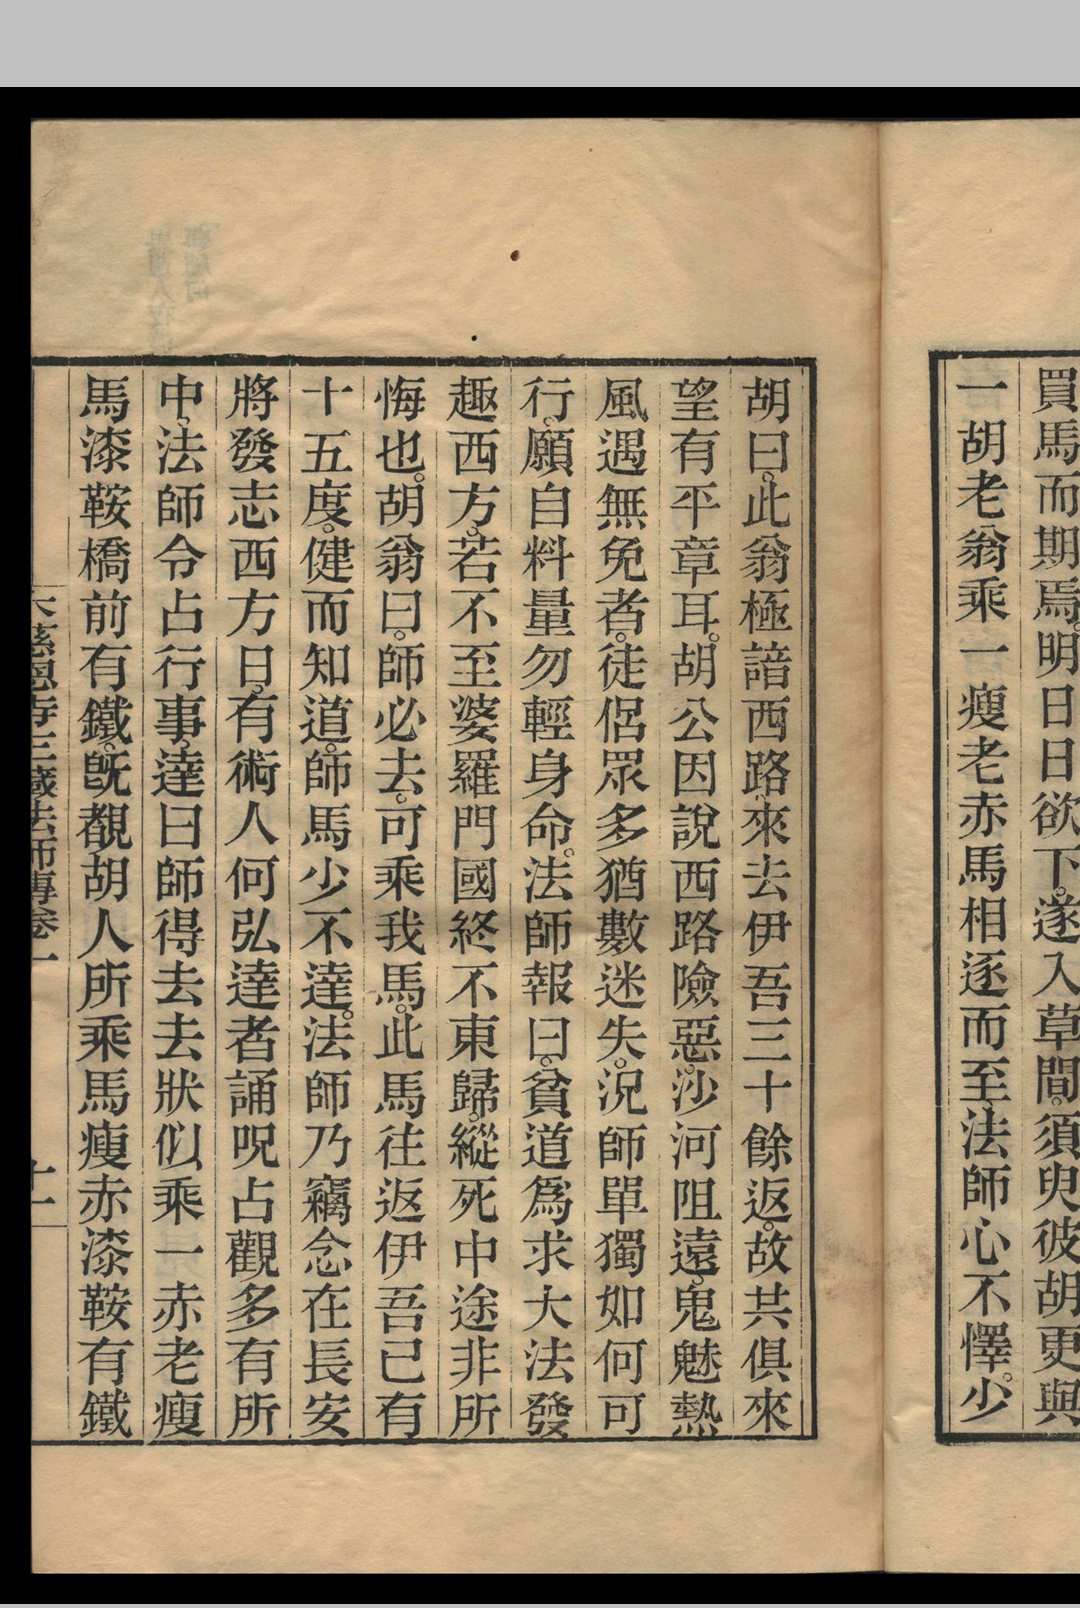 買馬而期焉。明日日欲下。遂入草間。須臾彼胡更與
一胡老翁乘一瘦老赤馬相逐而至。法師心不懌。少
胡曰。此翁極諳西路。來去伊吾三十餘返。故共俱來
望有平章耳。胡公因說西路險惡。沙河阻遠。鬼魅熱
風遇無免者。徒侶眾多猶數迷失。況師單獨如何可
行。願自料量勿輕身命。法師報曰。貧道爲求大法發
趣西方。若不至婆羅門國終不東歸。縱死中途非所
悔也。胡翁曰。師必去。可乘我馬。此馬往返伊吾已有
十五度。健而知道。師馬少不達。法師乃竊念在長安
將發志西方日。有術人何弘達者誦呪占觀多有所
中。法師令占行事。達曰師得去去狀似乘一赤老瘦
馬漆鞍橋前有鐵。既覩胡人所乘馬瘦赤漆鞍有鐵
大慈恩寺三藏法師傳卷一
十一